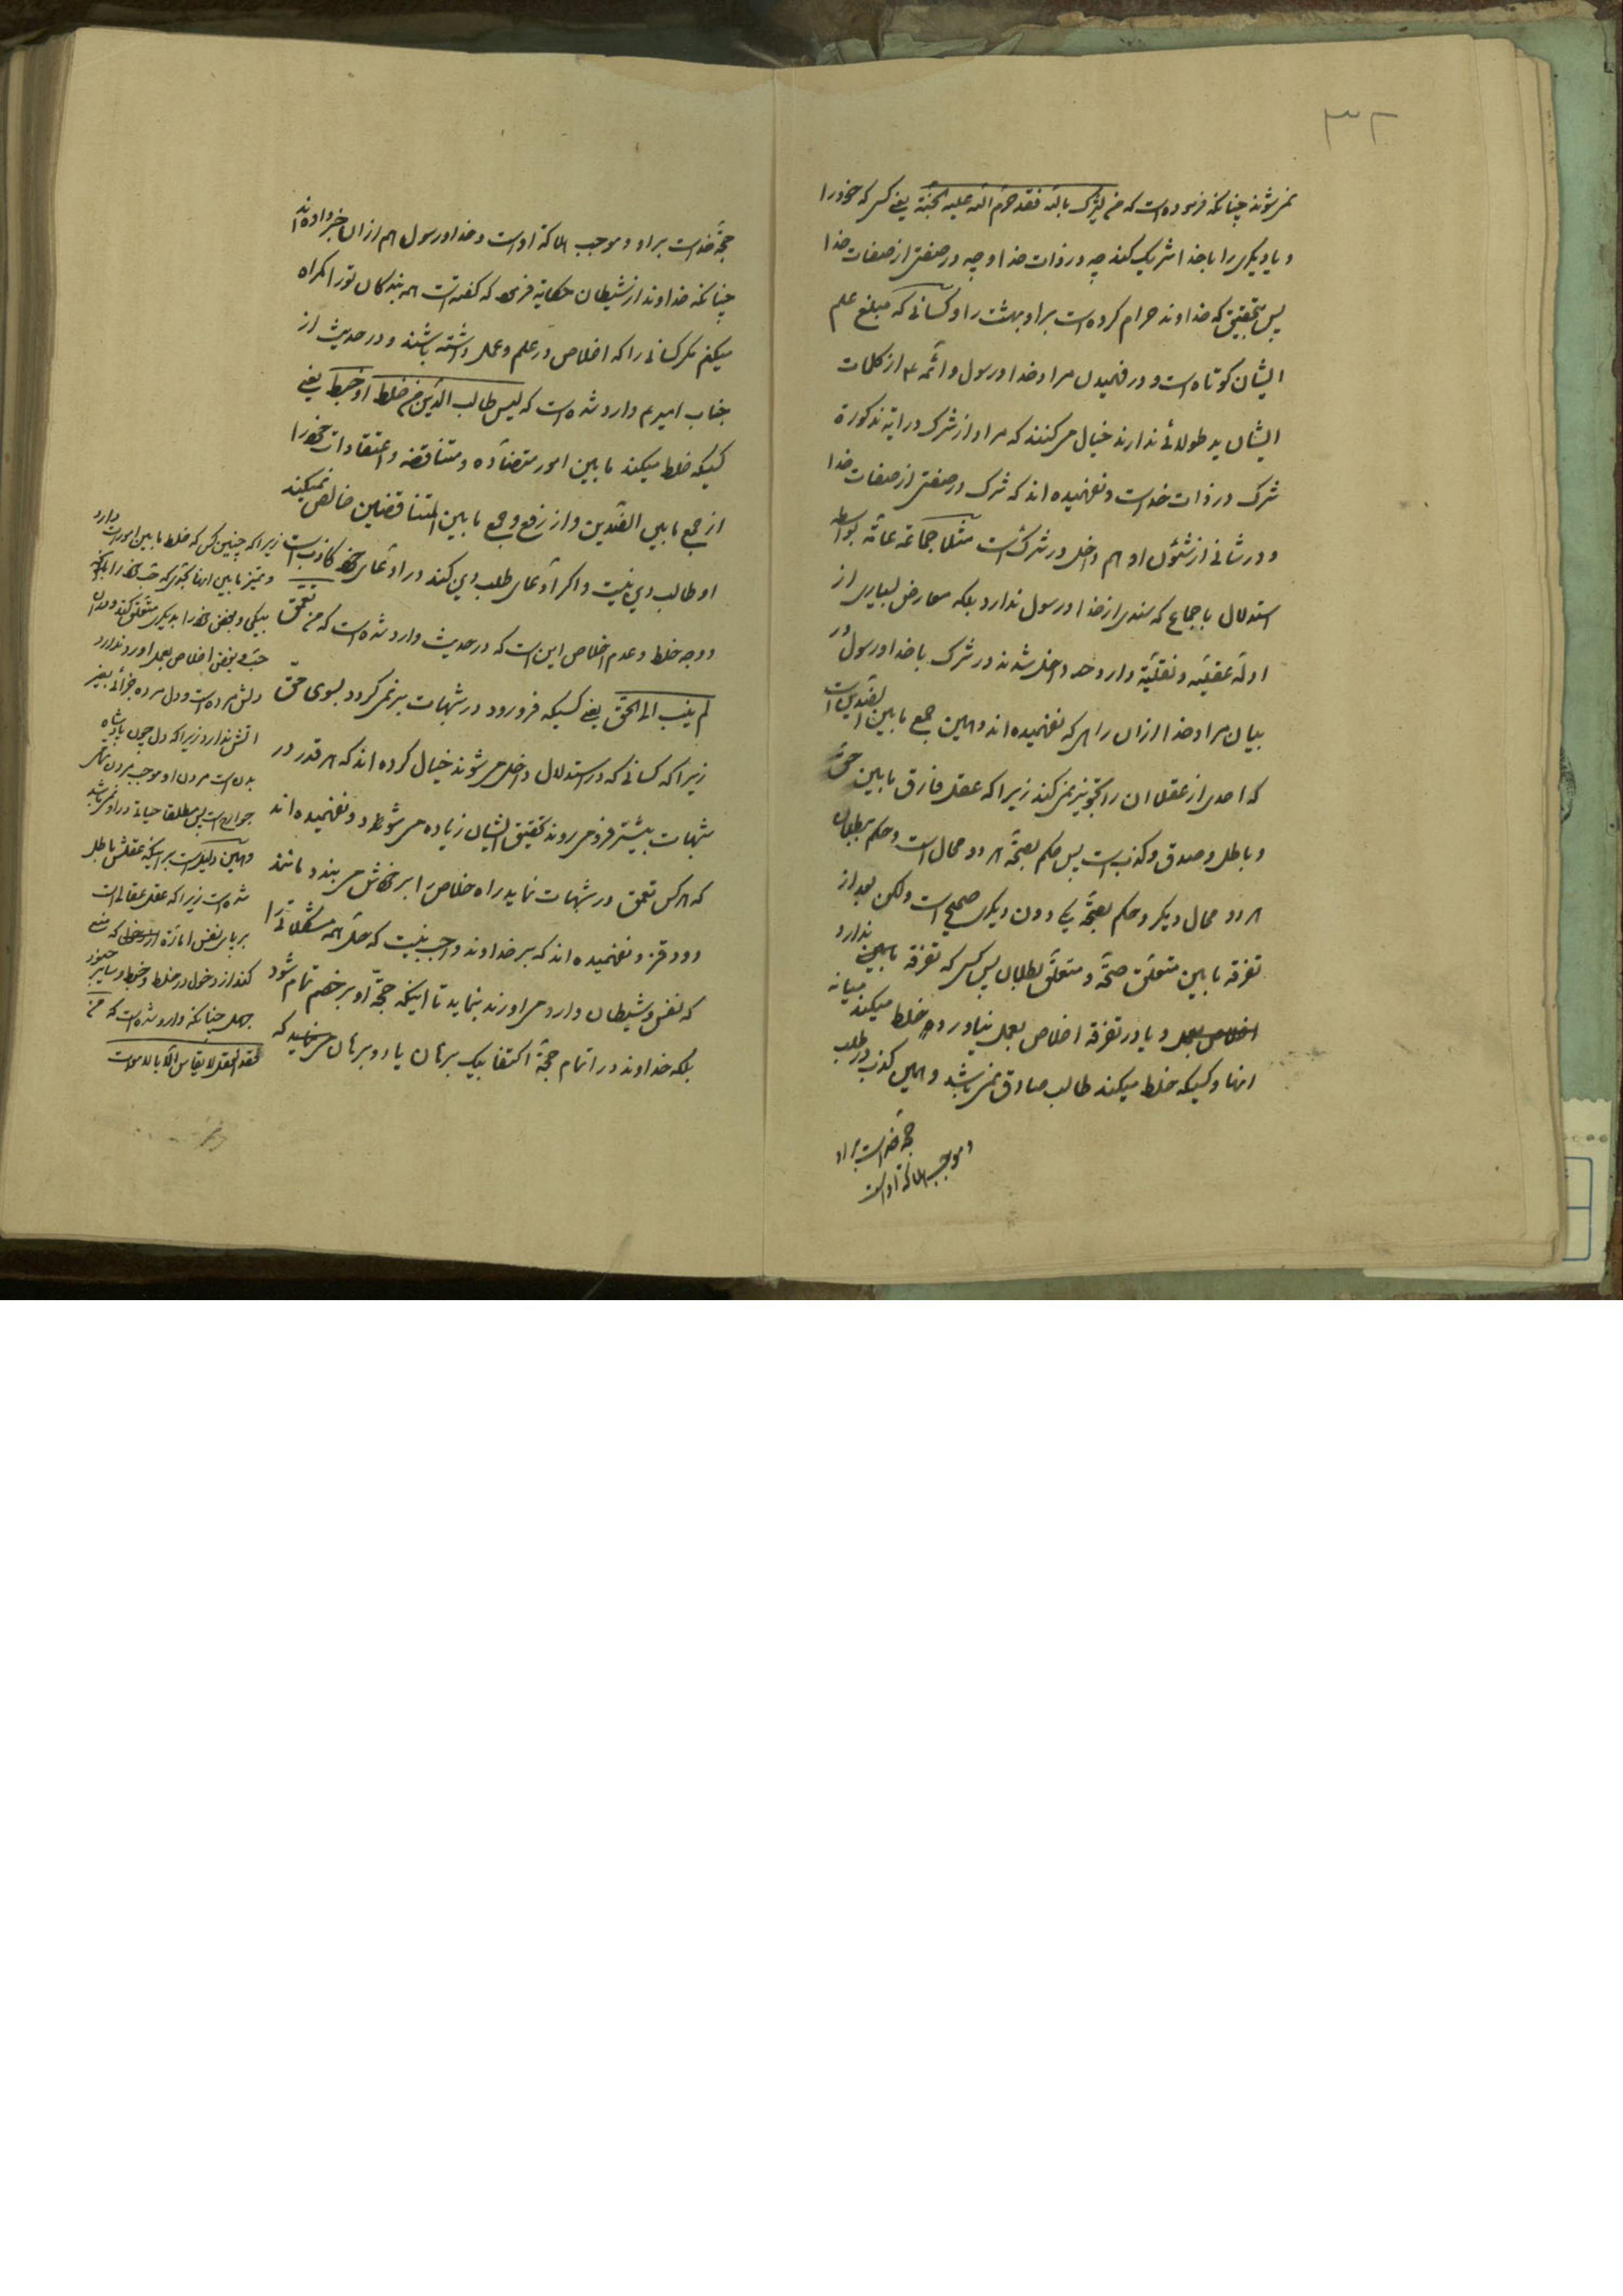 ٣٢
نمیشوند چنانکه فرموده است که من یشرک بالله فقد حرم الله علیه الجنة یعنی کسی که خود را
و یا دیگری را با خدا شریک کند چه در ذات خدا و چه در صفتی از صفات خدا
پس بتحقیق که خداوند حرام کرده است بر او بهشت را و کسانی که مبلغ علم
ایشان کوتاه است و در فهمیدن مراد خدا و رسول و ائمه ع از کلمات
ایشان ید طولائی ندارند خیال میکنند که مراد از شرک در آیه مذکورة
شرک در ذات خداست و نفهمیده اند که شرک در صفتی از صفات خدا
و در شانی از شئون او هم داخل در شرک است مثلا جماعة عامّة بواسطه
استدلال باجماع که سندی از خدا و رسول ندارد بلکه معارض بسیاری از
ادلّه عقلیّه و نقلیّة وارد حد داخل شدند در شرک با خدا و رسول در
بیان مراد خدا از ان راهی که نفهمیده اند و همین جمع ما بین الضدین است
که احدی از عقلا ان را تجویز نمی کند زیرا که عقل فارق ما بین حق
و باطل و صدق و کذب است پس حکم بصحّة هر دو محال است و حکم ببطلان
هر دو محال دیگر و حکم بصحّة یکی دون دیگری صحیح است ولکن بعد از
تفرقه ما بین متعلّق صحّة و متعلّق بطلان پس کسی که تفرقه ما بین ندارد
اخلاص بعمل و یا در تفرقة اخلاص بعمل نیاورد خلط میکند میانه
انها و کسیکه خلط میکند طالب صادق نمی باشد و همین کذب در طلب
حجّة خداست بر او
و موجب هلاکة اوست
حجّة خداست بر او و موجب هلاکة اوست و خدا و رسول هم از ان خبر داده اند
چنانکه خداوند از شیطان حکایة فرمود که گفته است همه بندکان تو را کمراه
میکنم مکر کسانی را که اخلاص در علم و عمل داشته باشند و در حدیث از
جناب امیر ع وارد شده است که لیس طالب الدّین من خلط او خبط یعنی
کسیکه خلط میکند ما بین امور متضادّه و متناقضه و اعتقادات خود را
از جمع ما بین الضدّین و از رفع و جمع ما بین المتناقضین خالص نمیکند
او طالب دین نیست و اکر ادّعای طلب دین کند در ادّعای خود کاذب است
و وجه خلط و عدم اخلاص این است که در حدیث وارد شده است که من تعمّق
لم ینب الی الحق یعنی کسیکه فرو رود در شبهات بر نمی کردد بسوی حقّ
زیرا که کسانی که در استدلال داخل می شوند خیال کرده اند که هر قدر در
شبهات بیشتر فرو می روند تحقیق ایشان زیاده می شود و نفهمیده اند
که هر کس تعمّق در شبهات نماید راه خلاص را بر خودش می بندد مانند
دود قز و نفهمیده اند که بر خداوند واجب نیست که حلّ همه مشکلاتی را
که نفس و شیطان وارد می اورند بنماید تا اینکه حجّة او بر خصم تمام شود
بلکه خداوند در اتمام حجّة اکتفا بیک برهان یا دو برهان می نماید که
زیرا که چنین کس که خلط ما بین امور دارد
و تمیز ما بین انها
بیکی و بغض خود را بدیکری متعلّق کند و در این
حبّ و بغض اخلاص بعمل اورد ندارد
دلش مرده است و دل مرده جزائی بغیر
اتش ندارد زیرا که دل چون پادشاه
بدن است مردن او موجب مردن همه
جوارح است پس مطلقا حیاتی در او نمی باشد
و همین دلیل است بر اینکه عقلش باطل
شده است زیرا که عقل عقالی است
بر پای نفس امّارّه که منع
کند از دخول در خلط و خبط و سایر جنود
جهل چنانکه وارد شده است که من
فقد العقل لا یقاس الّا بالاموات